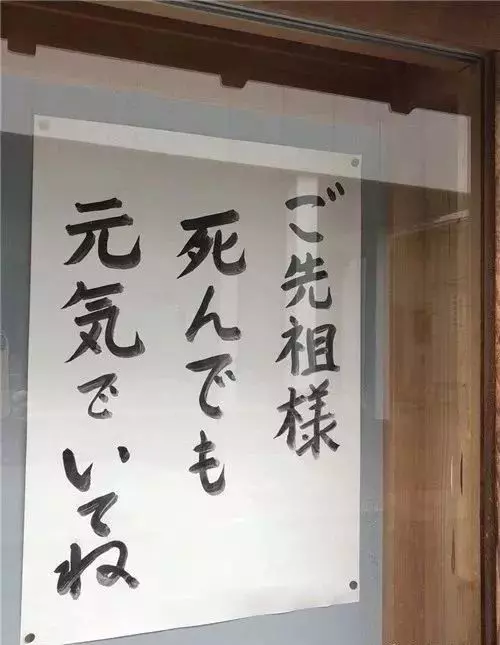 ご先祖様
死んでも
元気でいてね